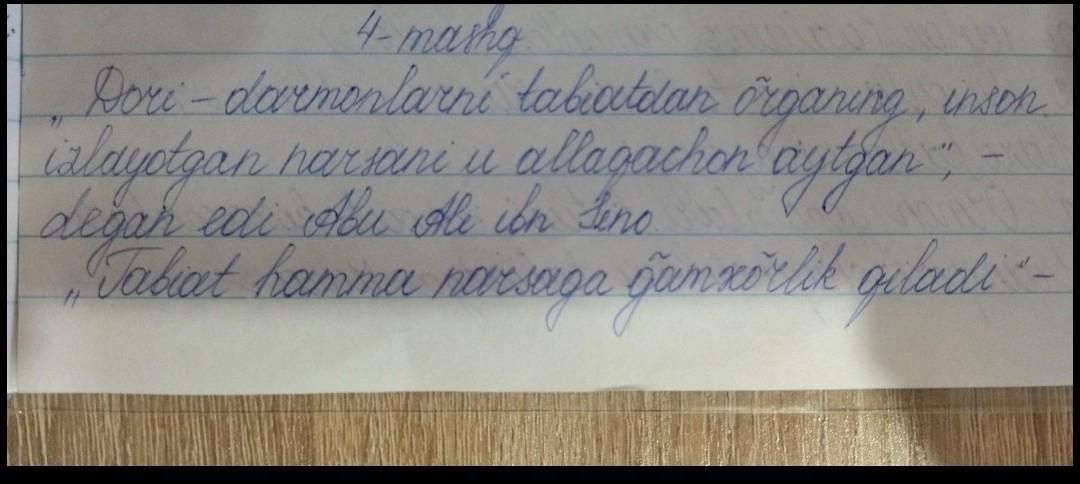 4-mashq.
„Dori-darmonlarni tabiatdan õrganing, inson
izlayotgan narsani u allaqachon aytgan", –
degan edi Abu Ali ibn Sino.
„Tabiat hamma narsaga g̃amxõrlik qiladi" –